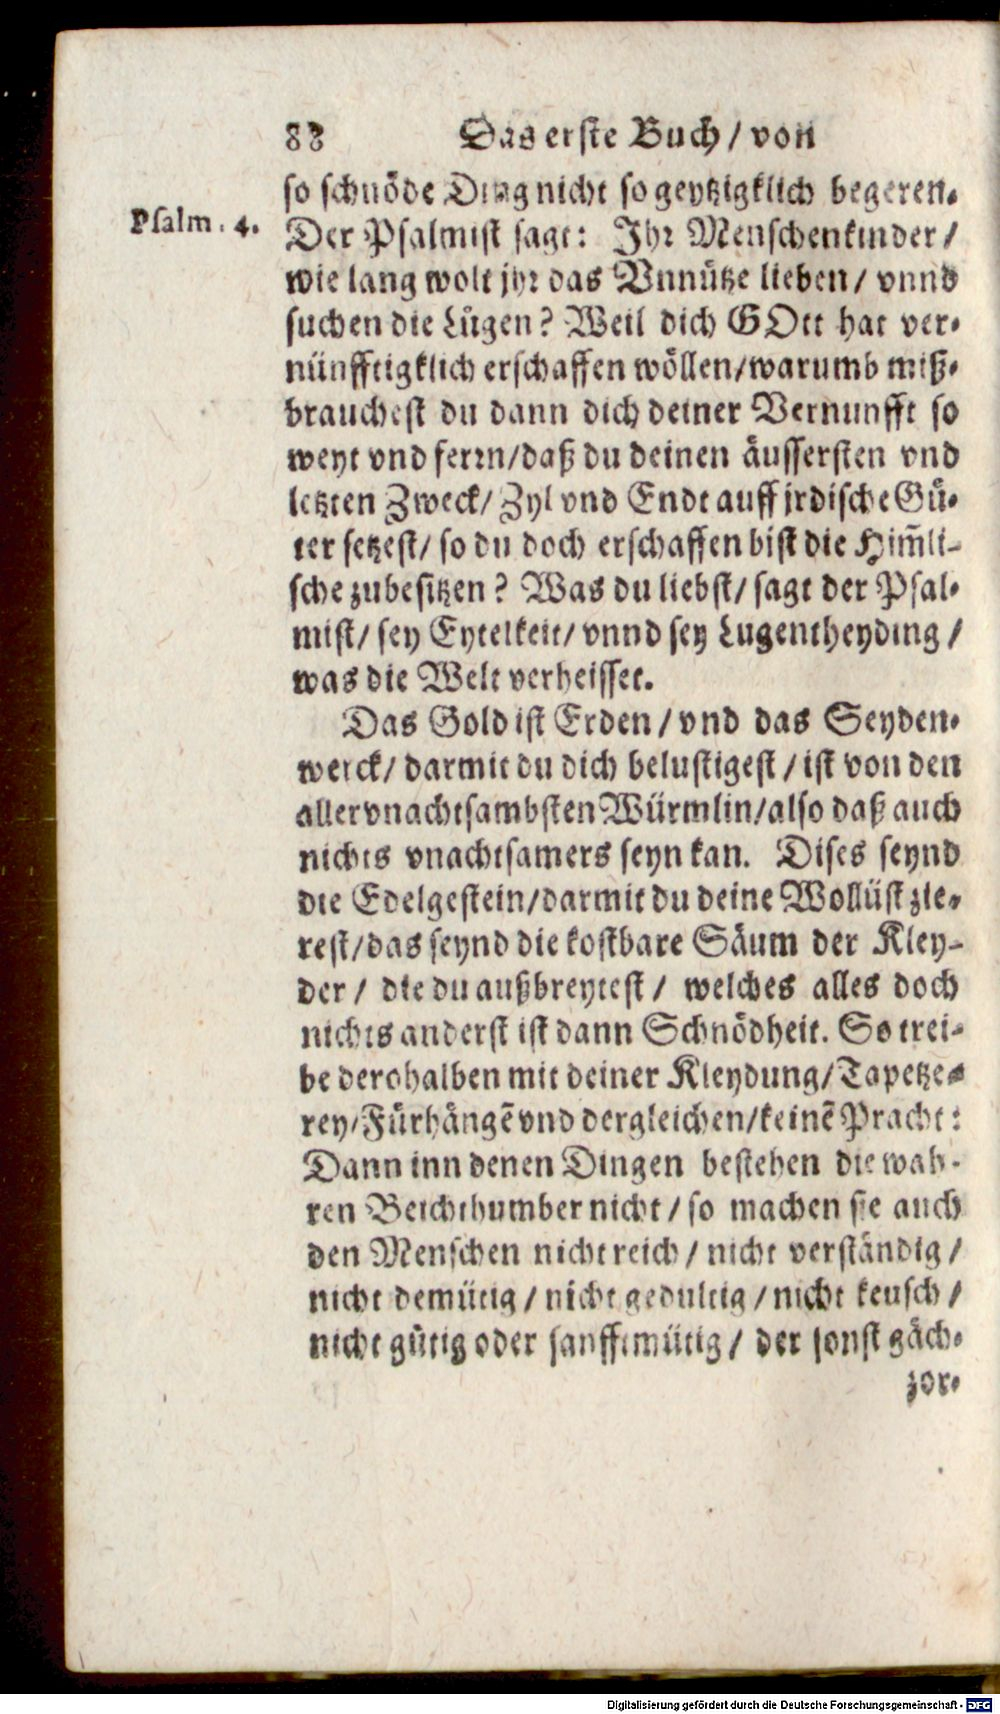 88 Das erste Buch / von
so schnöde Ding nicht so geytzigklich begeren.
Psalm. 4.
Der Psalmist sagt: Ihr Menschenkinder /
wie lang wolt jhr das Vnnütze lieben / vnnd
suchen die Lügen? Weil dich GOtt hat ver-
nünfftigklich erschaffen wöllen/warumb miß-
brauchest du dann dich deiner Vernunfft so
weyt vnd ferrn/daß du deinen äussersten vnd
letzten Zweck/ Zyl vnd Endt auff jrdische Gü-
ter setzest/ so du doch erschaffen bist die Him̃li-
sche zubesitzen? Was du liebst/ sagt der Psal-
mist/ sey Eytelkeit/ vnnd sey Lugentheyding /
was die Welt verheisset.
Das Gold ist Erden / vnd das Seyden-
werck/ darmit du dich belustigest / ist von den
allervnachtsambsten Würmlin/also daß auch
nichts vnachtsamers seyn kan. Dises seynd
die Edelgestein/darmit du deine Wollüst zie-
rest/das seynd die kostbare Säum der Kley-
der / die du außbreytest / welches alles doch
nichts anderst ist dann Schnödheit. So trei-
be derohalben mit deiner Kleydung/Tapetze-
rey/Fürhängẽ vnd dergleichen/keinẽ Pracht:
Dann inn denen Dingen bestehen die wah-
ren Reichthumber nicht / so machen sie auch
den Menschen nicht reich / nicht verständig /
nicht demütig / nicht gedultig / nicht keusch /
nicht gütig oder sanfftmütig / der sonst gäch-
zor-
Digitalisierung gefördert durch die Deutsche Forschungsgemeinschaft - DFG